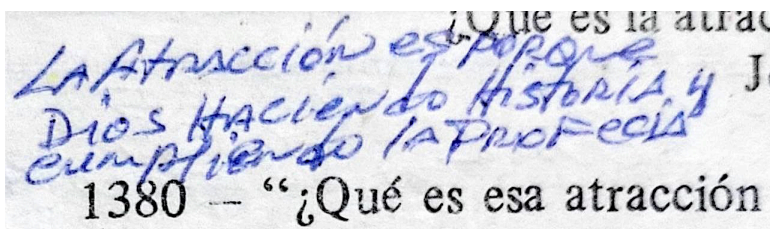 ¿Que es la atrac
La Atracción es porque
J
Dios Haciendo Historia y
cumpliendo la Profecia
1380 — “¿Qué es esa atracción